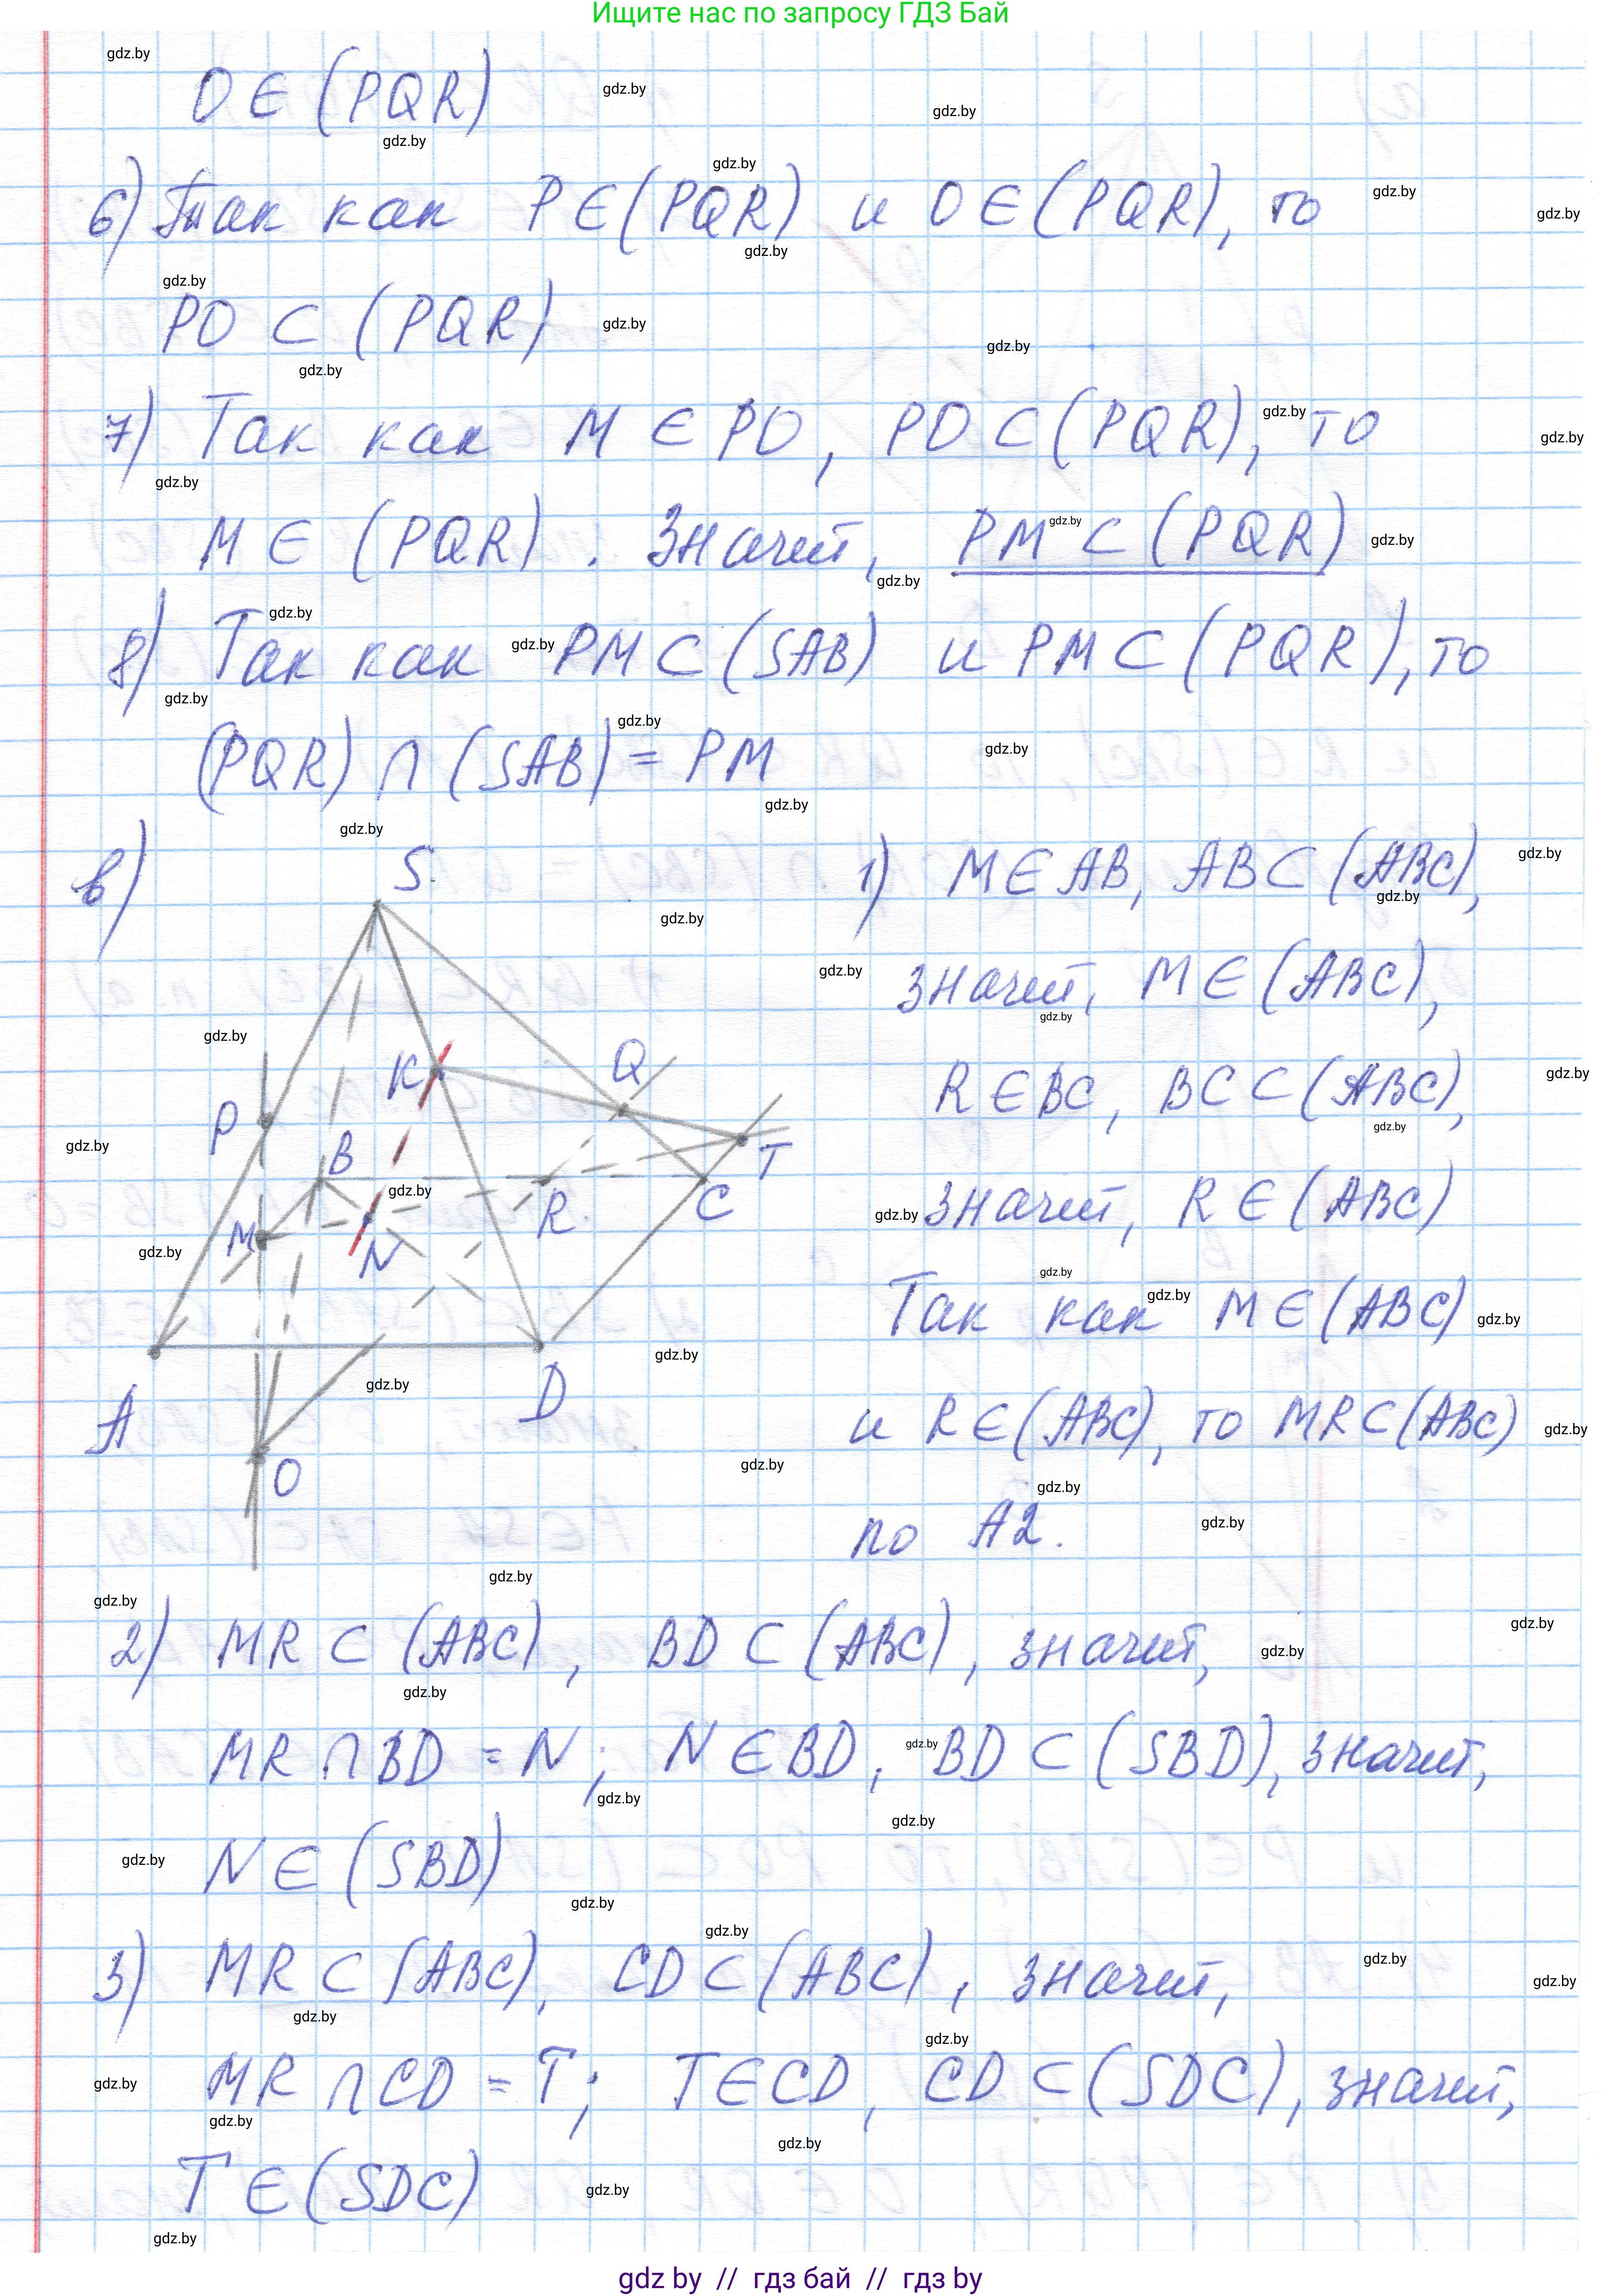 Ищите нас по запросу ГДЗ Бай
O ∈ (PQR)
6) Так как P ∈ (PQR) и O ∈ (PQR), то
PO ⊂ (PQR)
7) Так как M ∈ PO, PO ⊂ (PQR), то
M ∈ (PQR). Значит, PM ⊂ (PQR)
8) Так как PM ⊂ (SAB) и PM ⊂ (PQR), то
(PQR) ∩ (SAB) = PM
в)
S
K
Q
P
B
T
M
N
R
C
A
D
O
1) M ∈ AB, AB ⊂ (ABC),
значит, M ∈ (ABC),
R ∈ BC, BC ⊂ (ABC),
значит, R ∈ (ABC)
Так как M ∈ (ABC)
и R ∈ (ABC), то MR ⊂ (ABC)
по А2.
2) MR ⊂ (ABC), BD ⊂ (ABC), значит,
MR ∩ BD = N; N ∈ BD, BD ⊂ (SBD), значит,
N ∈ (SBD)
3) MR ⊂ (ABC), CD ⊂ (ABC), значит,
MR ∩ CD = T; T ∈ CD, CD ⊂ (SDC), значит,
T ∈ (SDC)
gdz by // гдз бай // гдз by